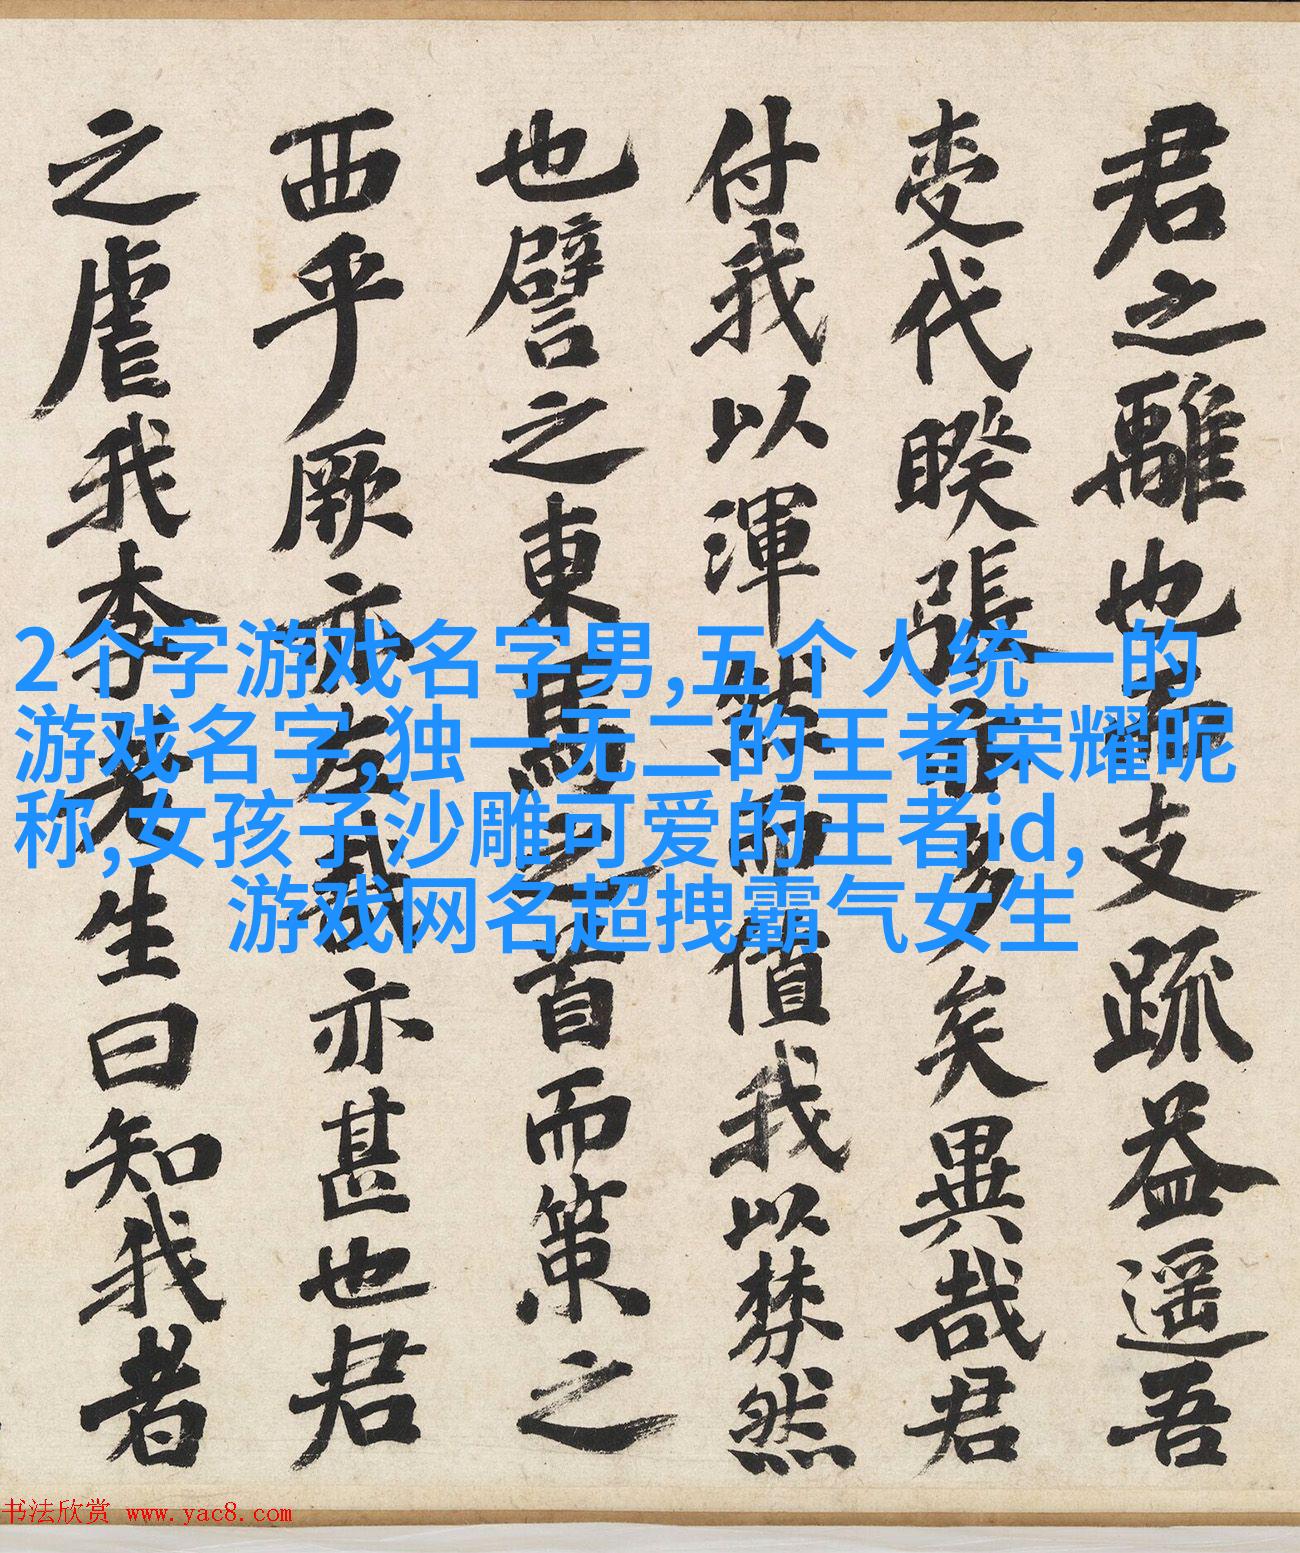 君之離也支疏益遥吾
代睽張多矣異哉君
付我以渾而值我以棼然
也譬之東馬之首而策之
西乎厥亦左哉亦甚也君
之虐我李先生曰知我者
2个字游戏名字男,五个人统一的
游戏名字,独一无二的王者荣耀昵
称,女孩子沙雕可爱的王者id,
游戏网名超拽霸气女生
书法欣赏 www.yac8.com